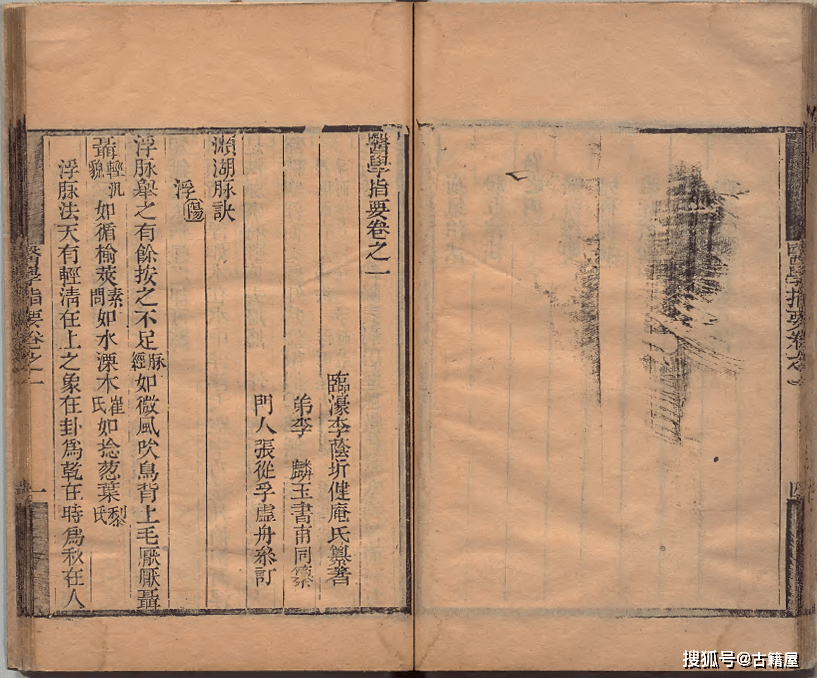 醫學指要卷之
醫學指要卷之一
臨濠李蔭圻健庵氏纂著
弟李 麟玉書甫同纂
門人張從孚虛舟叅訂
瀕湖脉訣
浮 陽
浮脉舉之有餘按之不足脉經如微風吹鳥背上毛厭厭聶
聶輕汎貌如循榆莢素問如水漂木崔氏如捻葱葉黎氏
浮脉法天有輕清在上之象在卦爲乾在時爲秋在人
醫學指要卷之一 一
搜狐号@古籍屋